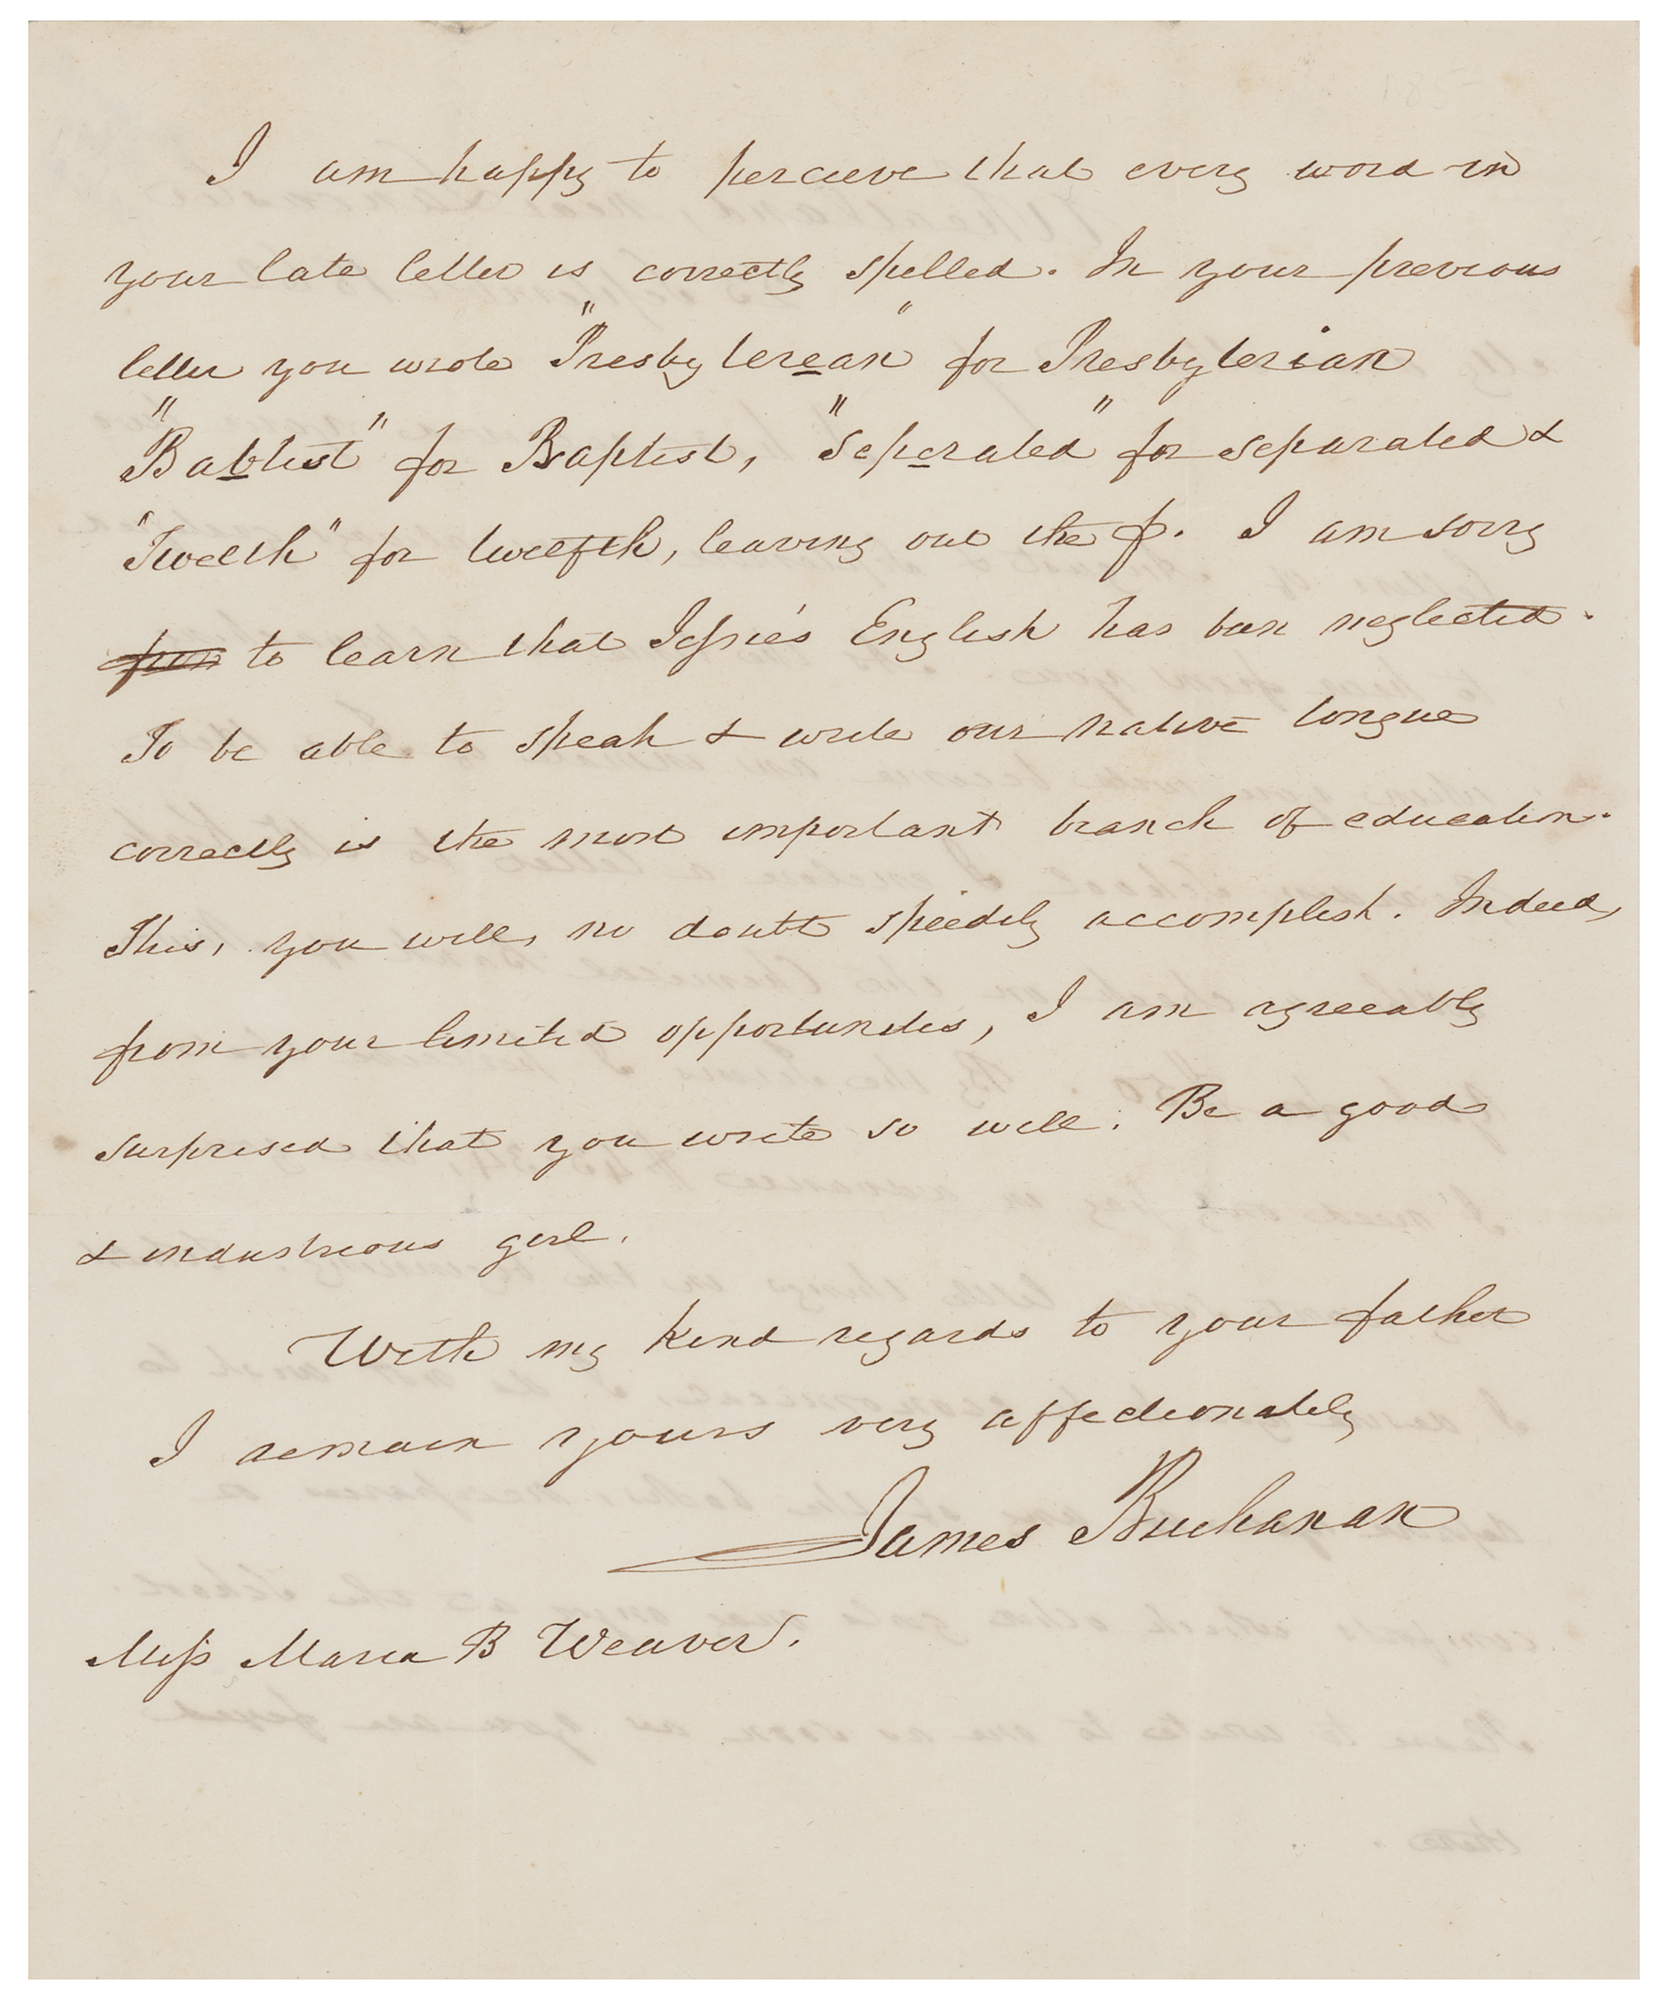 I am happy to perceive that every word in
your late letter is correctly spelled. In your previous
letter you wrote "Presbyterean" for Presbyterian
"Babtist" for Baptist, "seperated" for separated &
"Twelth" for twelfth, leaving out the f. I am sorry
to learn that Jessie's English has been neglected.
To be able to speak & write our native tongue
correctly is the most important branch of education.
This, you will, no doubt speedily accomplish. Indeed,
from your limited opportunities, I am agreeably
surprised that you write so well. Be a good
& industrious girl.
With my kind regards to your father
I remain yours very affectionately
James Buchanan
Miss Maria B Weaver.